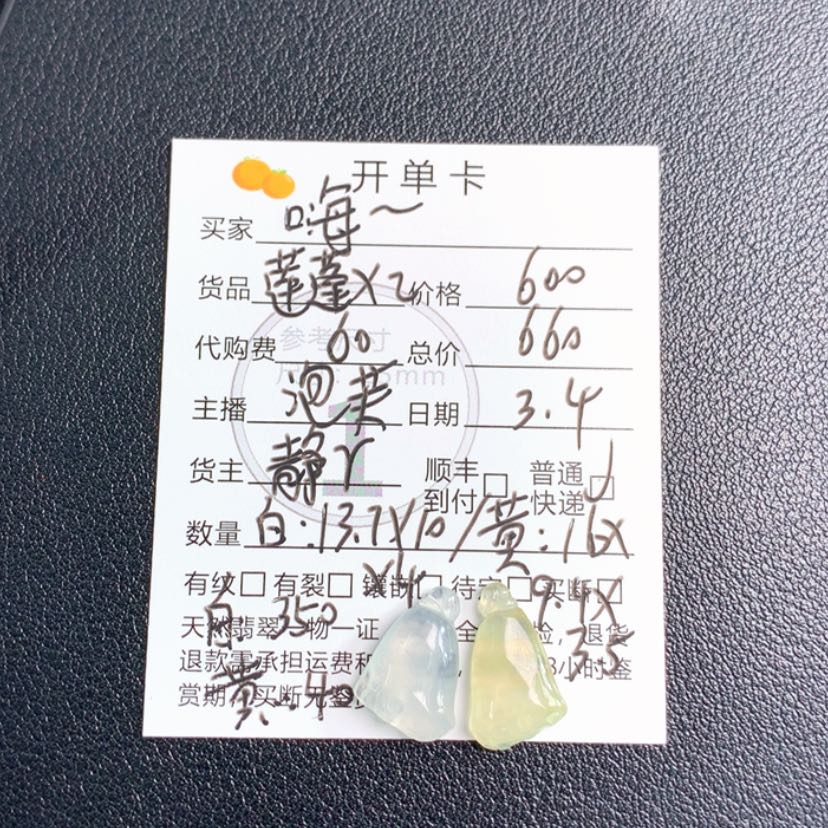 开单卡
买家 嗨~
货品 莲蓬X2 价格 600
代购费 60 总价 660
参考尺寸
mm
主播 泡芙 日期 3.4
1
货主 静Y 顺丰到付□ 普通快递□
数量 白:13.7X10/黄:16X
有纹□ 有裂□ 镶嵌□ 待定□ 买断□
X4 9.4X
白:350 3.5
天然翡翠一物一证 全 检,退货
退款需承担运费和 小时鉴
赏期,买断无鉴赏
黄: